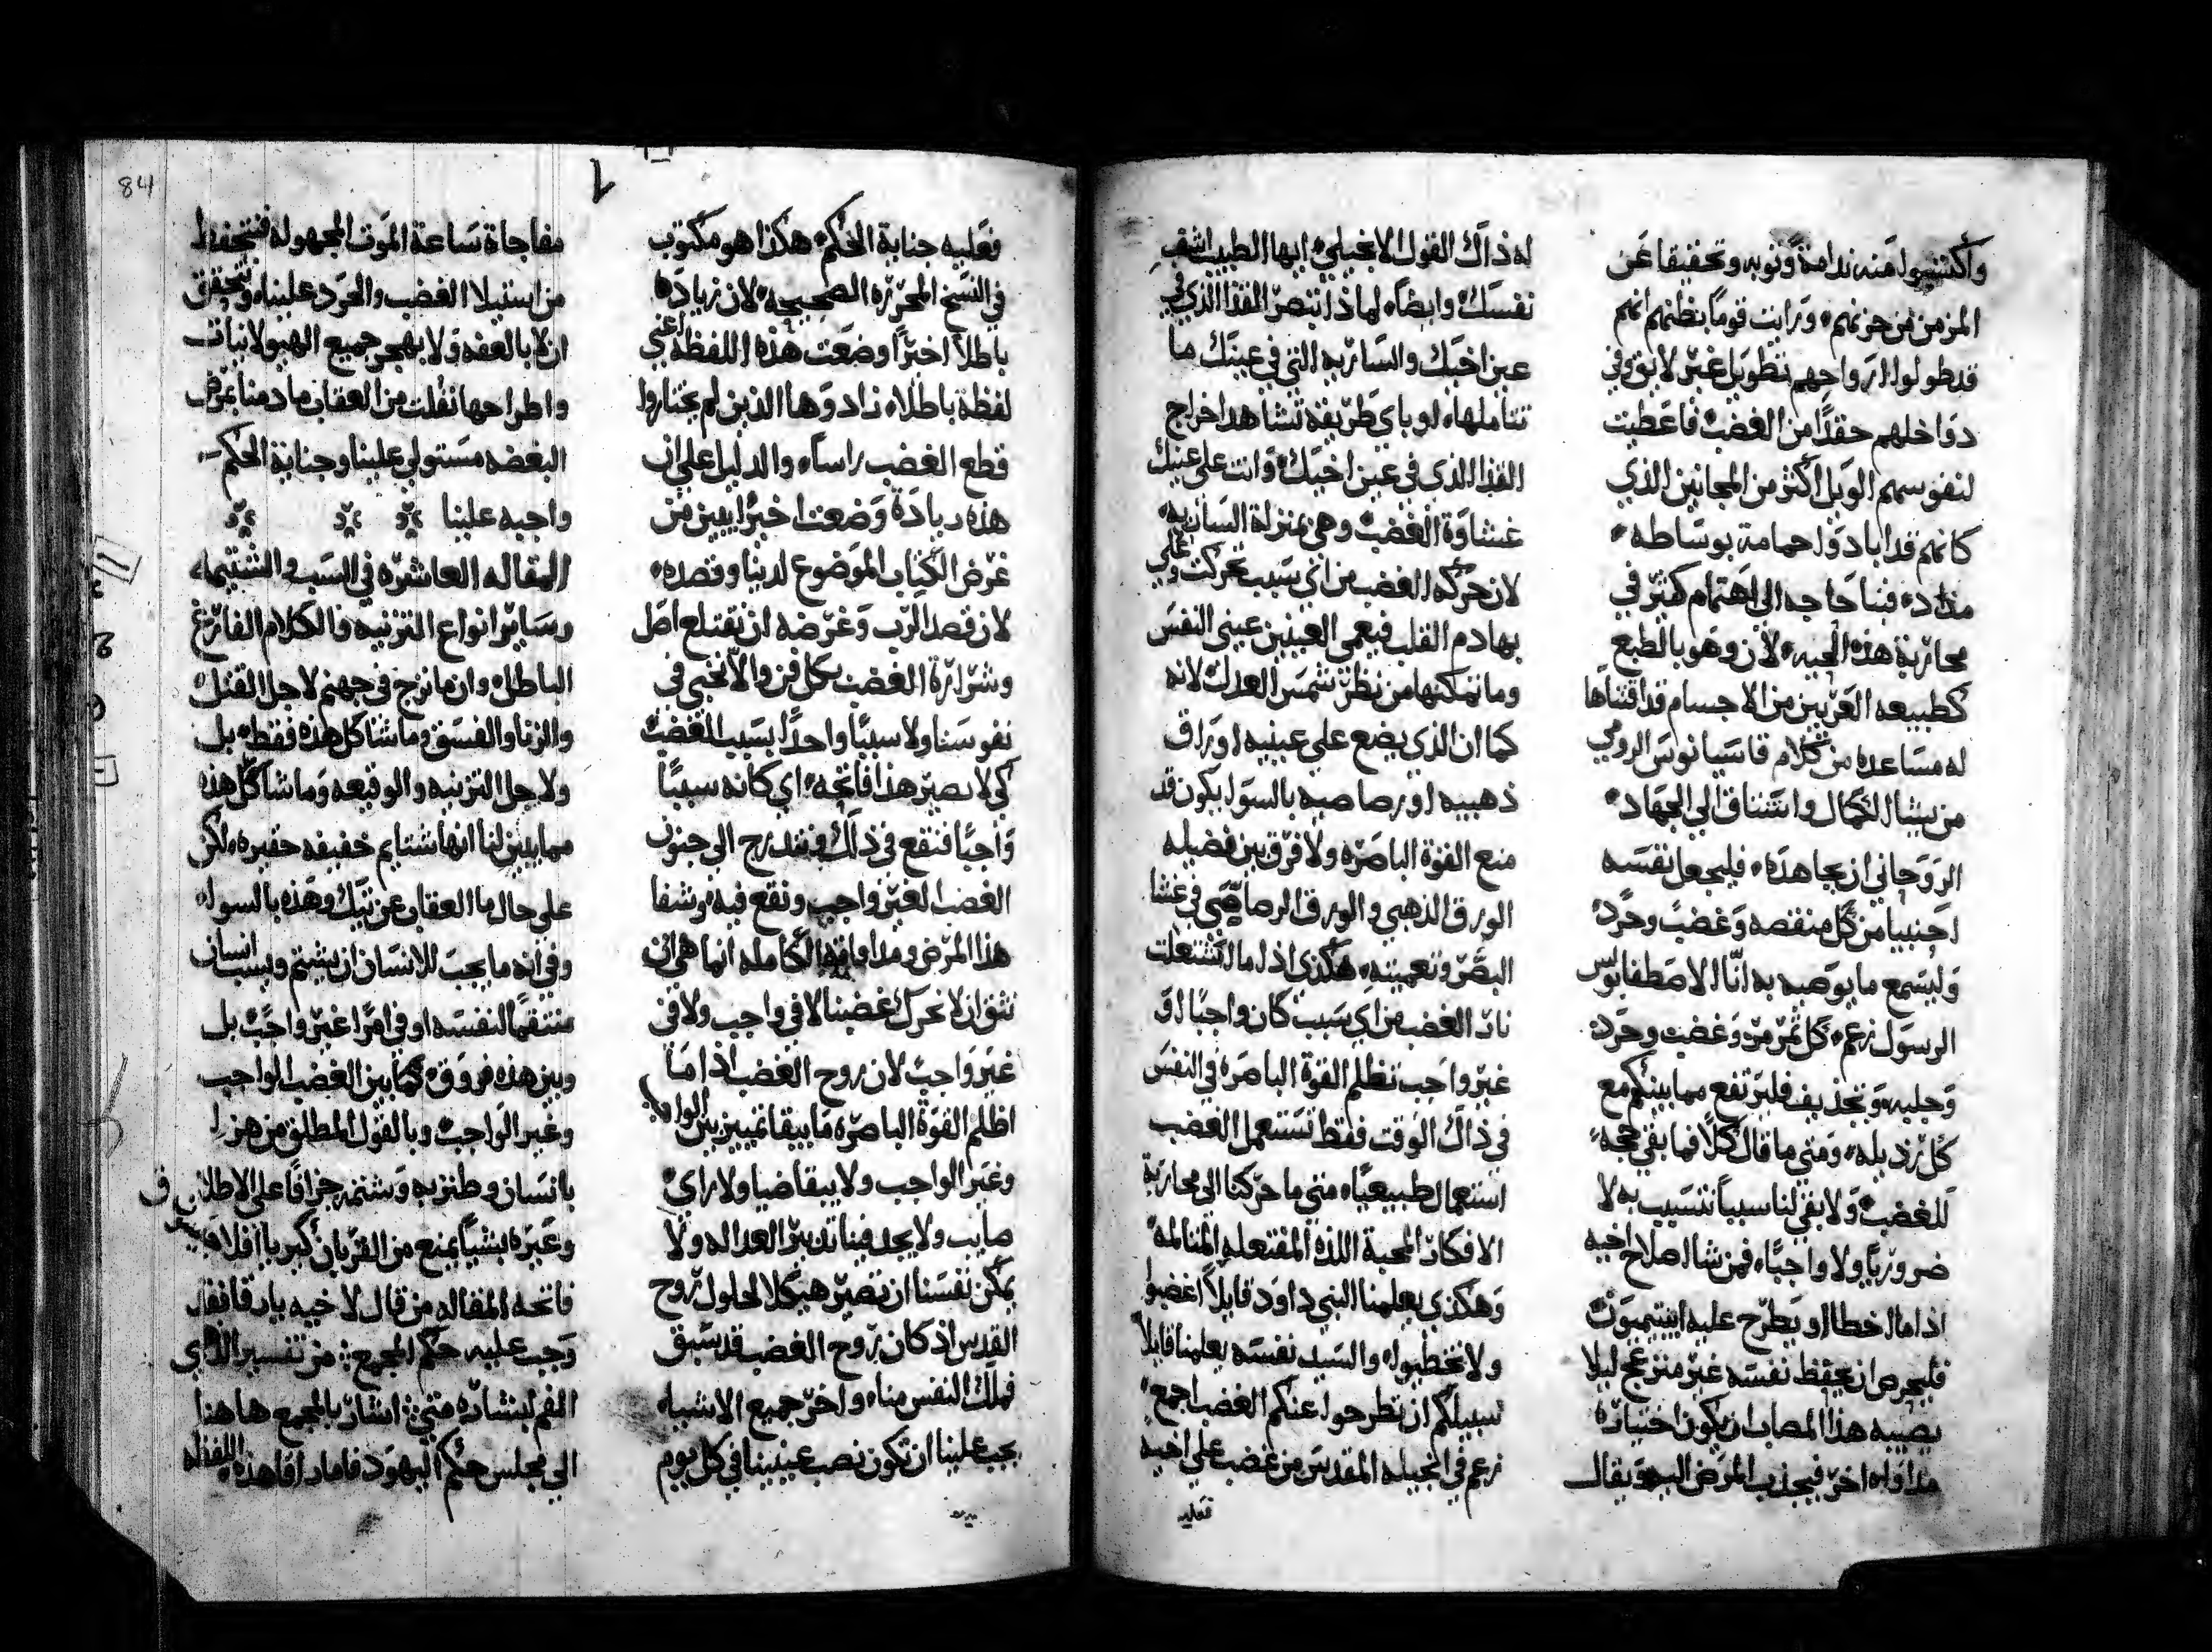 واكتسبوا منه ندامة وتوبه وتحقيقا عن
المزمن من حزنهم، ورايت قوما بظنهم انهم
قد طولوا ارواحهم تطويل غير لايق وفي
دواخلهم حقدا من الغضب فاعطيت
لنفوسهم الويل اكثر من المجانين الذي
كانهم قد ابادوا حمامة بوساطه
مداد، فبنا حاجه الى اهتمام كثير في
محاربة هذه الحيه، لان وهو بالطبع
كطبيعه العربين من الاجسام قد اقتناها
له مساعده من كلام قاسيانوس الرومي
من يشا الكمال واشتاق الى الجهاد
الروحاني ان يجاهده، فليجعل نفسه
اجنبيا من كل منقصه وغضب وحرد
وليسمع ما يوصيه به انا الاصطفا بولس
الرسول زعم، كل تمرمر وغضب وحرد
وجلبه وتجديف فليرتفع مما بينكم مع
كل رذيله، ومتى ما قال كلا فما بقي حجة
للغضب، ولا بقي لنا سببا نتسبب به لا
ضروريا ولا واجبا، فمن شا اصلاح اخيه
اذا ما اخطا او يطرح عليه ابيتيميون
فليحرص ان يحفظ نفسه غير منزعج ليلا
يصيبه هذا المصاب ان يكون اختياره
مداواه اخر فيجذب المرض اليه ويقال
له ذاك القول الانجيلي، ايها الطبيب اشف
نفسك، وايضا، لماذا تبصر القذا الذي في
عين اخيك والساريه التي في عينك ما
تتاملها، او باي طريقة تشاهد اخراج
القذا الذي في عين اخيك، وانت على عينيك
غشاوة الغضب، وهي بمنزلة الساريه
لان حركه الغضب من اي سبب تحركت وغلي
بها دم القلب فيعمي العينين عيني النفس
وما تمكنها من نظر شمس العدل، لانه
كما ان الذي يضع على عينيه اوراق
ذهبيه او رصاصيه بالسوا يكون قد
منع القوة الباصره ولا فرق بين فضيله
الورق الذهبي والورق الرصاصي في غشا
البصر وتعميته، هكذى اذا ما اشتعلت
نار الغضب من اي سبب كان واجبا او
غير واجب تظلم القوة الباصره في النفس
في ذاك الوقت فقط نستعمل الغضب
استعمال طبيعيا، متى ما حركنا الى محاربة
الافكار المحبة اللذه المفتعله المتالمه
وهكذى يعلمنا النبي داود قايلا اغضبوا
ولا تخطيوا، والسيد نفسه يعلمنا قايلا
سبيلكم ان تطرحوا عنكم الغضب اجمع
زعم في انجيله المقدس من غضب على اخيه
فعليه
فعليه جناية الحكم، هكذا هو مكتوب
في النسخ المحرره الصحيحه، لان زيادة
باطلا اخيرا وضعت هذه اللفظه اعني
لفظة باطلا، زادوها الذين لم يختاروا
قطع الغضب راسا، والدليل على ان
هذه زيادة وضعت اخيرا يبين من
غرض الكتاب الموضوع لدينا وقصده،
لان قصد الرب وغرضه ان نقتلع اصل
وشرارة الغضب بكل فن والا نخبي في
نفوسنا ولا سببا واحدا بسبب الغضب
كي لا يصير هذا فاتحه، اي كانه سببا
واجبا فنقع في ذلك فنتدرج الى جنون
الغضب الغير واجب ونقع فيه، وشفا
هذا المرض ومداواته الكامله انما هي ان
نثق ان لا نحرك غضبنا لا في واجب ولا في
غير واجب لان روح الغضب اذا ما
اظلم القوة الباصره ما يبقا تمييز بين الواجب
وغير الواجب ولا يبقا ضيا ولا راي
صايب ولا يجد فينا تدبير العداله ولا
يمكن نفسنا ان تصير هيكلا لحلول روح
القدس اذ كان روح الغضب قد سبق
فملك النفس منا، واخر جميع الاشيا
يجب علينا ان تكون نصب عينينا في كل يوم
مفاجاة ساعة الموت المجهوله فنتحفظ
من استيلا الغضب والحرد علينا، ونتحقق
ان لا بالعفه ولا بهجر جميع الهيولانيات
واطراحها نفلت من العقاب ما دمنا بمرض
البغضه مستولي علينا وجناية الحكم
واجبه علينا
المقاله العاشره في السب والشتيمه
وساير انواع التزنيه والكلام الفارغ
الباطل، وان ما نزج في جهنم لاجل القتل
والزنا والفسق وما شاكل هذه فقط، بل
ولاجل التزنيه والوقيعه وما شاكل هذه
مما يبين لنا انها شتايم خفيفه حقيره، لكن
على حال ما العقاب عن تيك وهذه بالسوا
وفي انه ما يجب للانسان ان يشتم ويسب انسان
منتقما لنفسه او في امرا غير واجب، بل
وبين هذه فروق، كما بين الغضب الواجب
وغير الواجب، وبالقول المطلق من هزا
بانسان وطنز به وشتمه جزافا على الاطلاق
وعيره بشيا يمنع من القربان كيريا افلاجيسن
فاتحة المقاله من قال لاخيه ياراقا فقد
وجب عليه حكم المجمع، من تفسير الذي
الفم لبشارة متى، اشار بالمجمع هاهنا
الى مجلس حكم اليهود فاما راقا هذه اللفظه
84